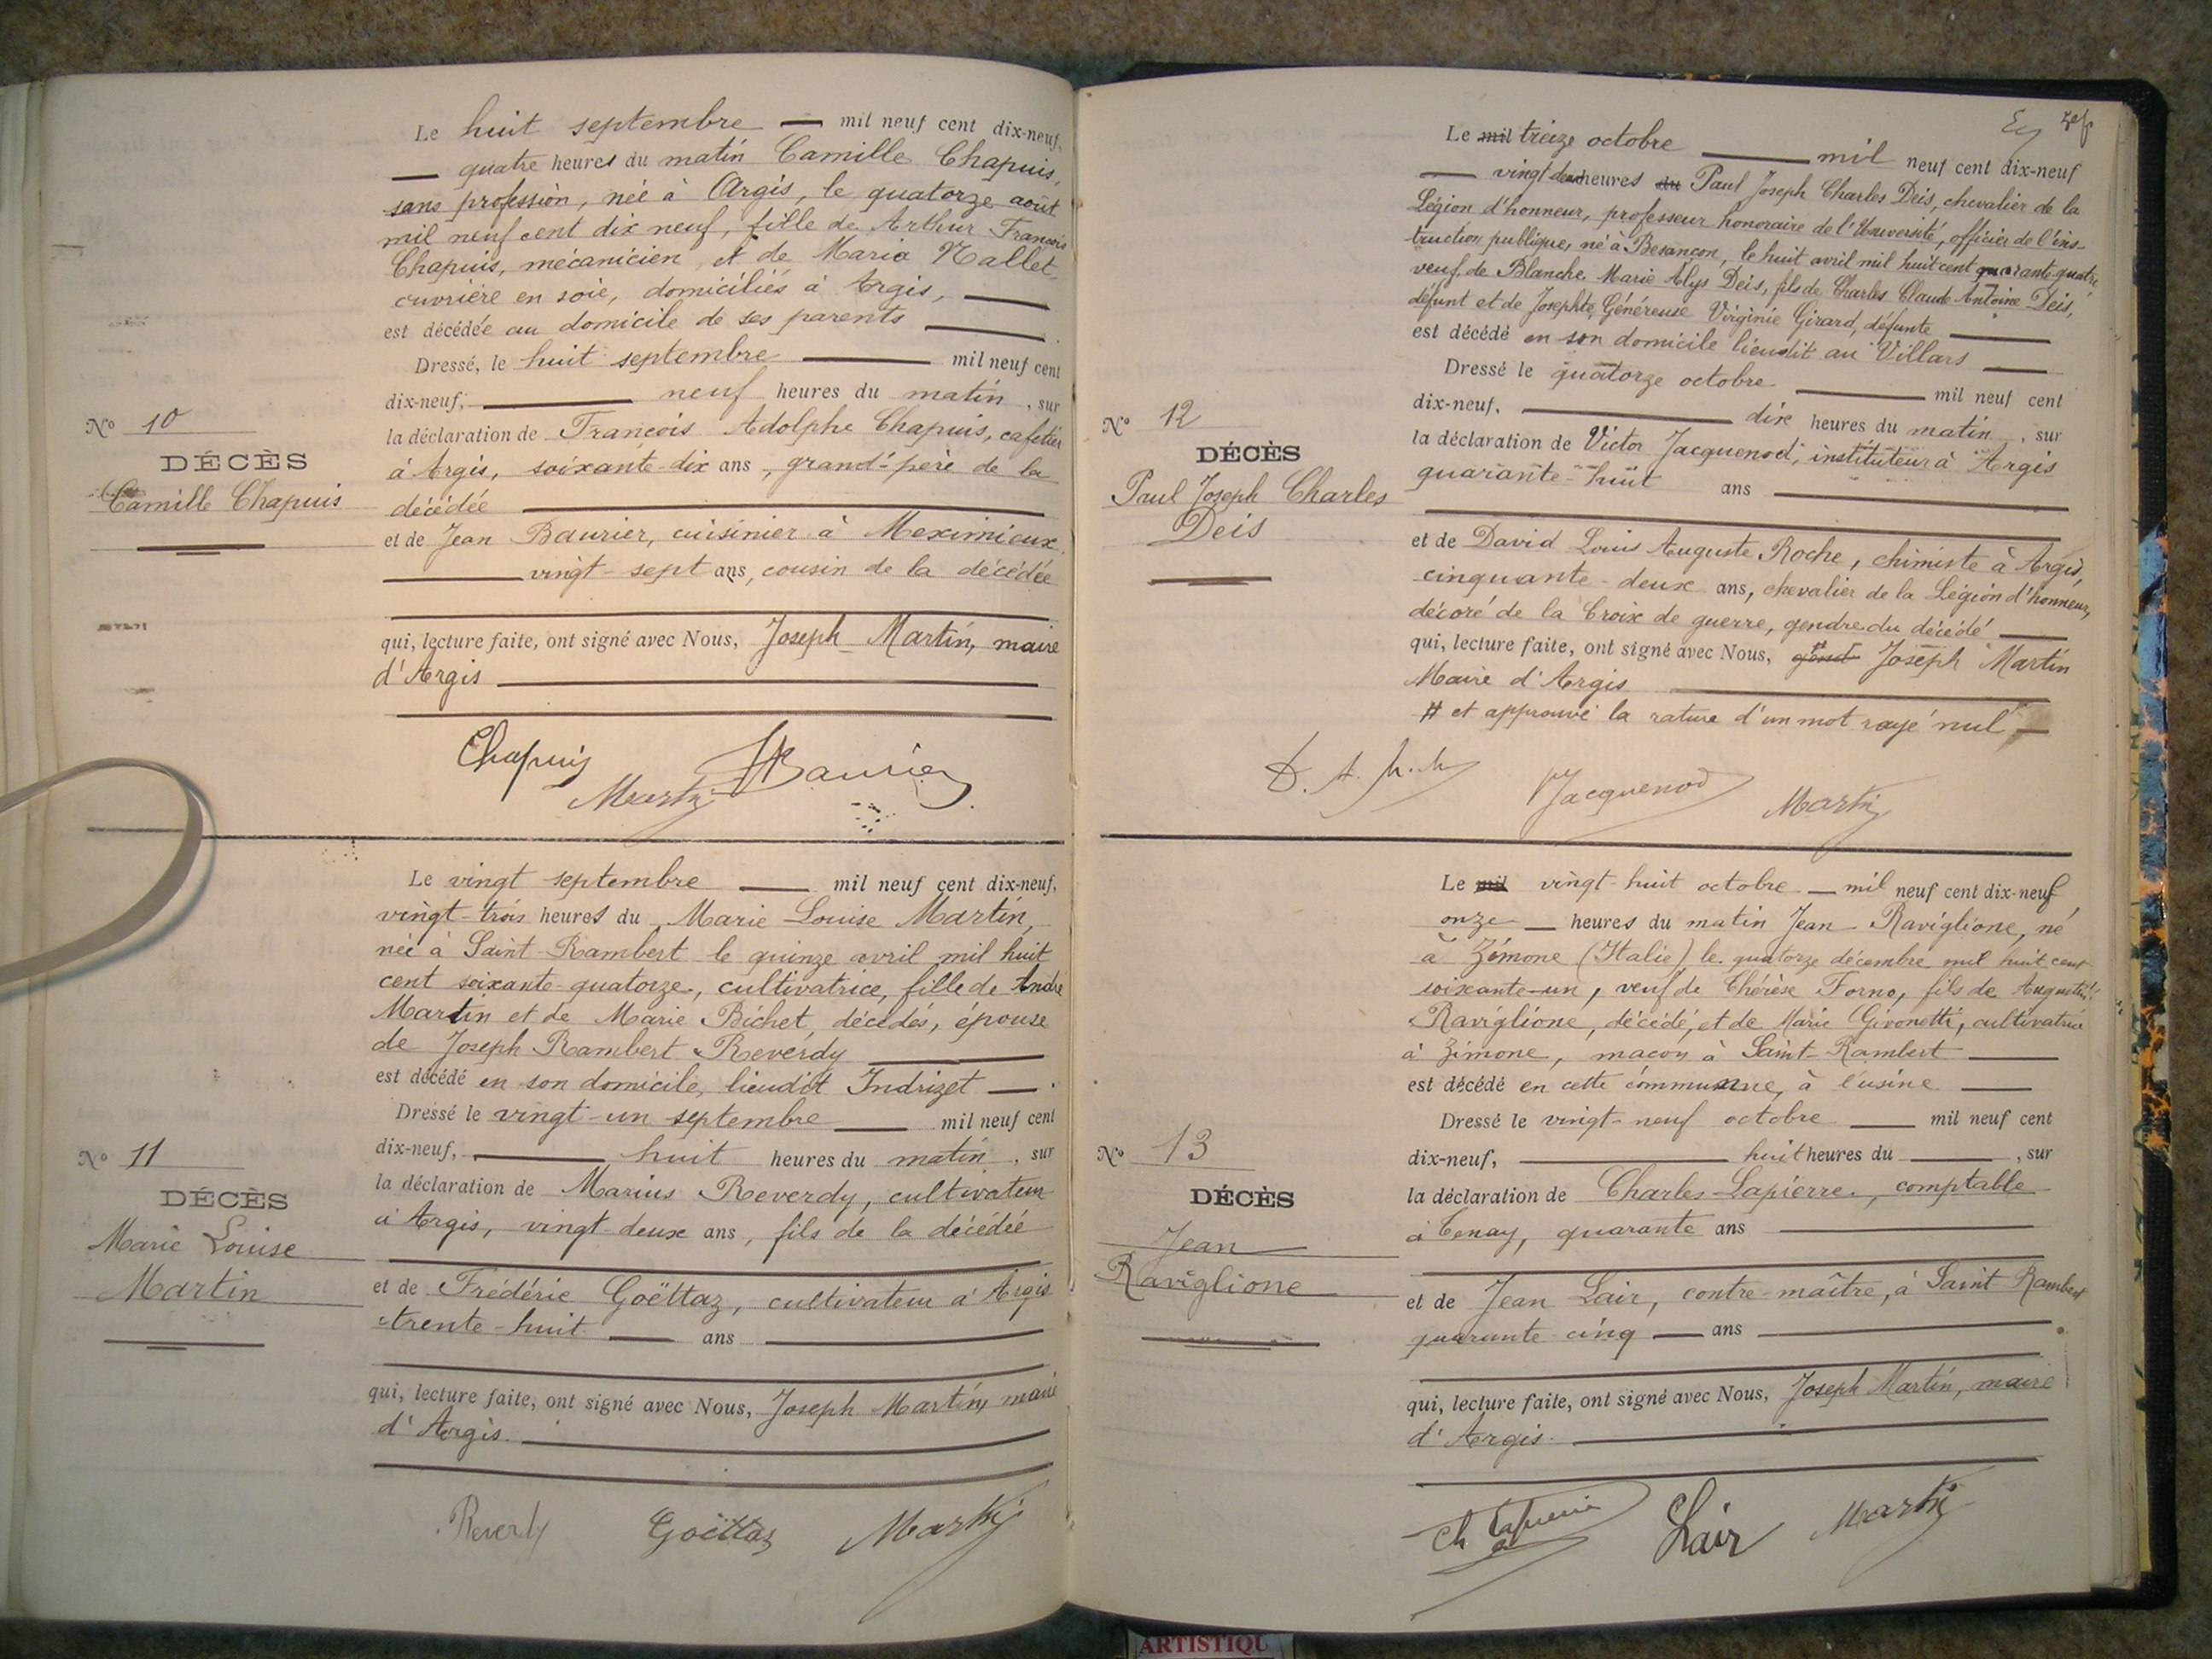 Le huit septembre — mil neuf cent dix-neuf,
— quatre heures du matin Camille Chapuis,
sans profession, née à Argis, le quatorze août
mil neuf cent dix neuf, fille de Arthur François
Chapuis, mécanicien, et de Maria Mallet,
ouvrière en soie, domiciliés à Argis, —
est décédée au domicile de ses parents —
Dressé, le huit septembre — mil neuf cent
dix-neuf, — neuf heures du matin, sur
la déclaration de François Adolphe Chapuis, cafetier
à Argis, soixante-dix ans, grand-père de la
décédée —
et de Jean Baurier, cuisinier à Meximieux
— vingt-sept ans, cousin de la décédée
qui, lecture faite, ont signé avec Nous, Joseph Martin, maire
d'Argis —
N° 10
DÉCÈS
Camille Chapuis
Chapuis Baurier
Martin
Le vingt septembre — mil neuf cent dix-neuf,
vingt-trois heures du Marie Louise Martin,
née à Saint-Rambert le quinze avril mil huit
cent soixante-quatorze, cultivatrice, fille de André
Martin et de Marie Bichet, décédés, épouse
de Joseph Rambert Reverdy —
est décédé en son domicile, lieudit Indrizet —.
Dressé le vingt-un septembre — mil neuf cent
dix-neuf, — huit heures du matin, sur
la déclaration de Marius Reverdy, cultivateur
à Argis, vingt-deux ans, fils de la décédée
et de Frédéric Goëttaz, cultivateur à Argis
trente-huit — ans —
qui, lecture faite, ont signé avec Nous, Joseph Martin, maire
d'Argis. —
N° 11
DÉCÈS
Marie Louise
Martin
Reverdy Goëttaz Martin
Le mil treize octobre — mil neuf cent dix-neuf
— vingt deux heures du Paul Joseph Charles Deis, chevalier de la
Légion d'honneur, professeur honoraire de l'Université, officier de l'ins-
truction publique, né à Besançon, le huit avril mil huit cent quarante-quatre
veuf de Blanche Marie Alys Deis, fils de Charles Claude Antoine Deis,
défunt et de Josephte Généreuse Virginie Girard, défunte —
est décédé en son domicile lieudit au Villars —
Dressé le quatorze octobre — mil neuf cent
dix-neuf, — dix heures du matin, sur
la déclaration de Victor Jacquenod, instituteur à Argis
quarante-huit ans —
et de David Louis Auguste Roche, chimiste à Argis,
cinquante-deux ans, chevalier de la Légion d'honneur,
décoré de la Croix de guerre, gendre du décédé —
qui, lecture faite, ont signé avec Nous, Joseph Martin
Maire d'Argis —
# et approuvé la rature d'un mot rayé nul —
N° 12
DÉCÈS
Paul Joseph Charles
Deis
Jacquenod Martin
Le mil vingt-huit octobre — mil neuf cent dix-neuf,
onze — heures du matin Jean Raviglione, né
à Zimone (Italie) le quatorze décembre mil huit cent
soixante-un, veuf de Thérèse Forno, fils de Augustin
Raviglione, décédé, et de Marie Givonetti, cultivatrice
à Zimone, maçon à Saint-Rambert —
est décédé en cette commune, à l'usine —
Dressé le vingt-neuf octobre — mil neuf cent
dix-neuf, — huit heures du —, sur
la déclaration de Charles Lapierre, comptable
à Tenay, quarante ans —
et de Jean Lair, contre-maître, à Saint Rambert
quarante-cinq — ans —
qui, lecture faite, ont signé avec Nous, Joseph Martin, maire
d'Argis. —
N° 13
DÉCÈS
Jean
Raviglione
Ch Lapierre Lair Martin
ARTISTIQU